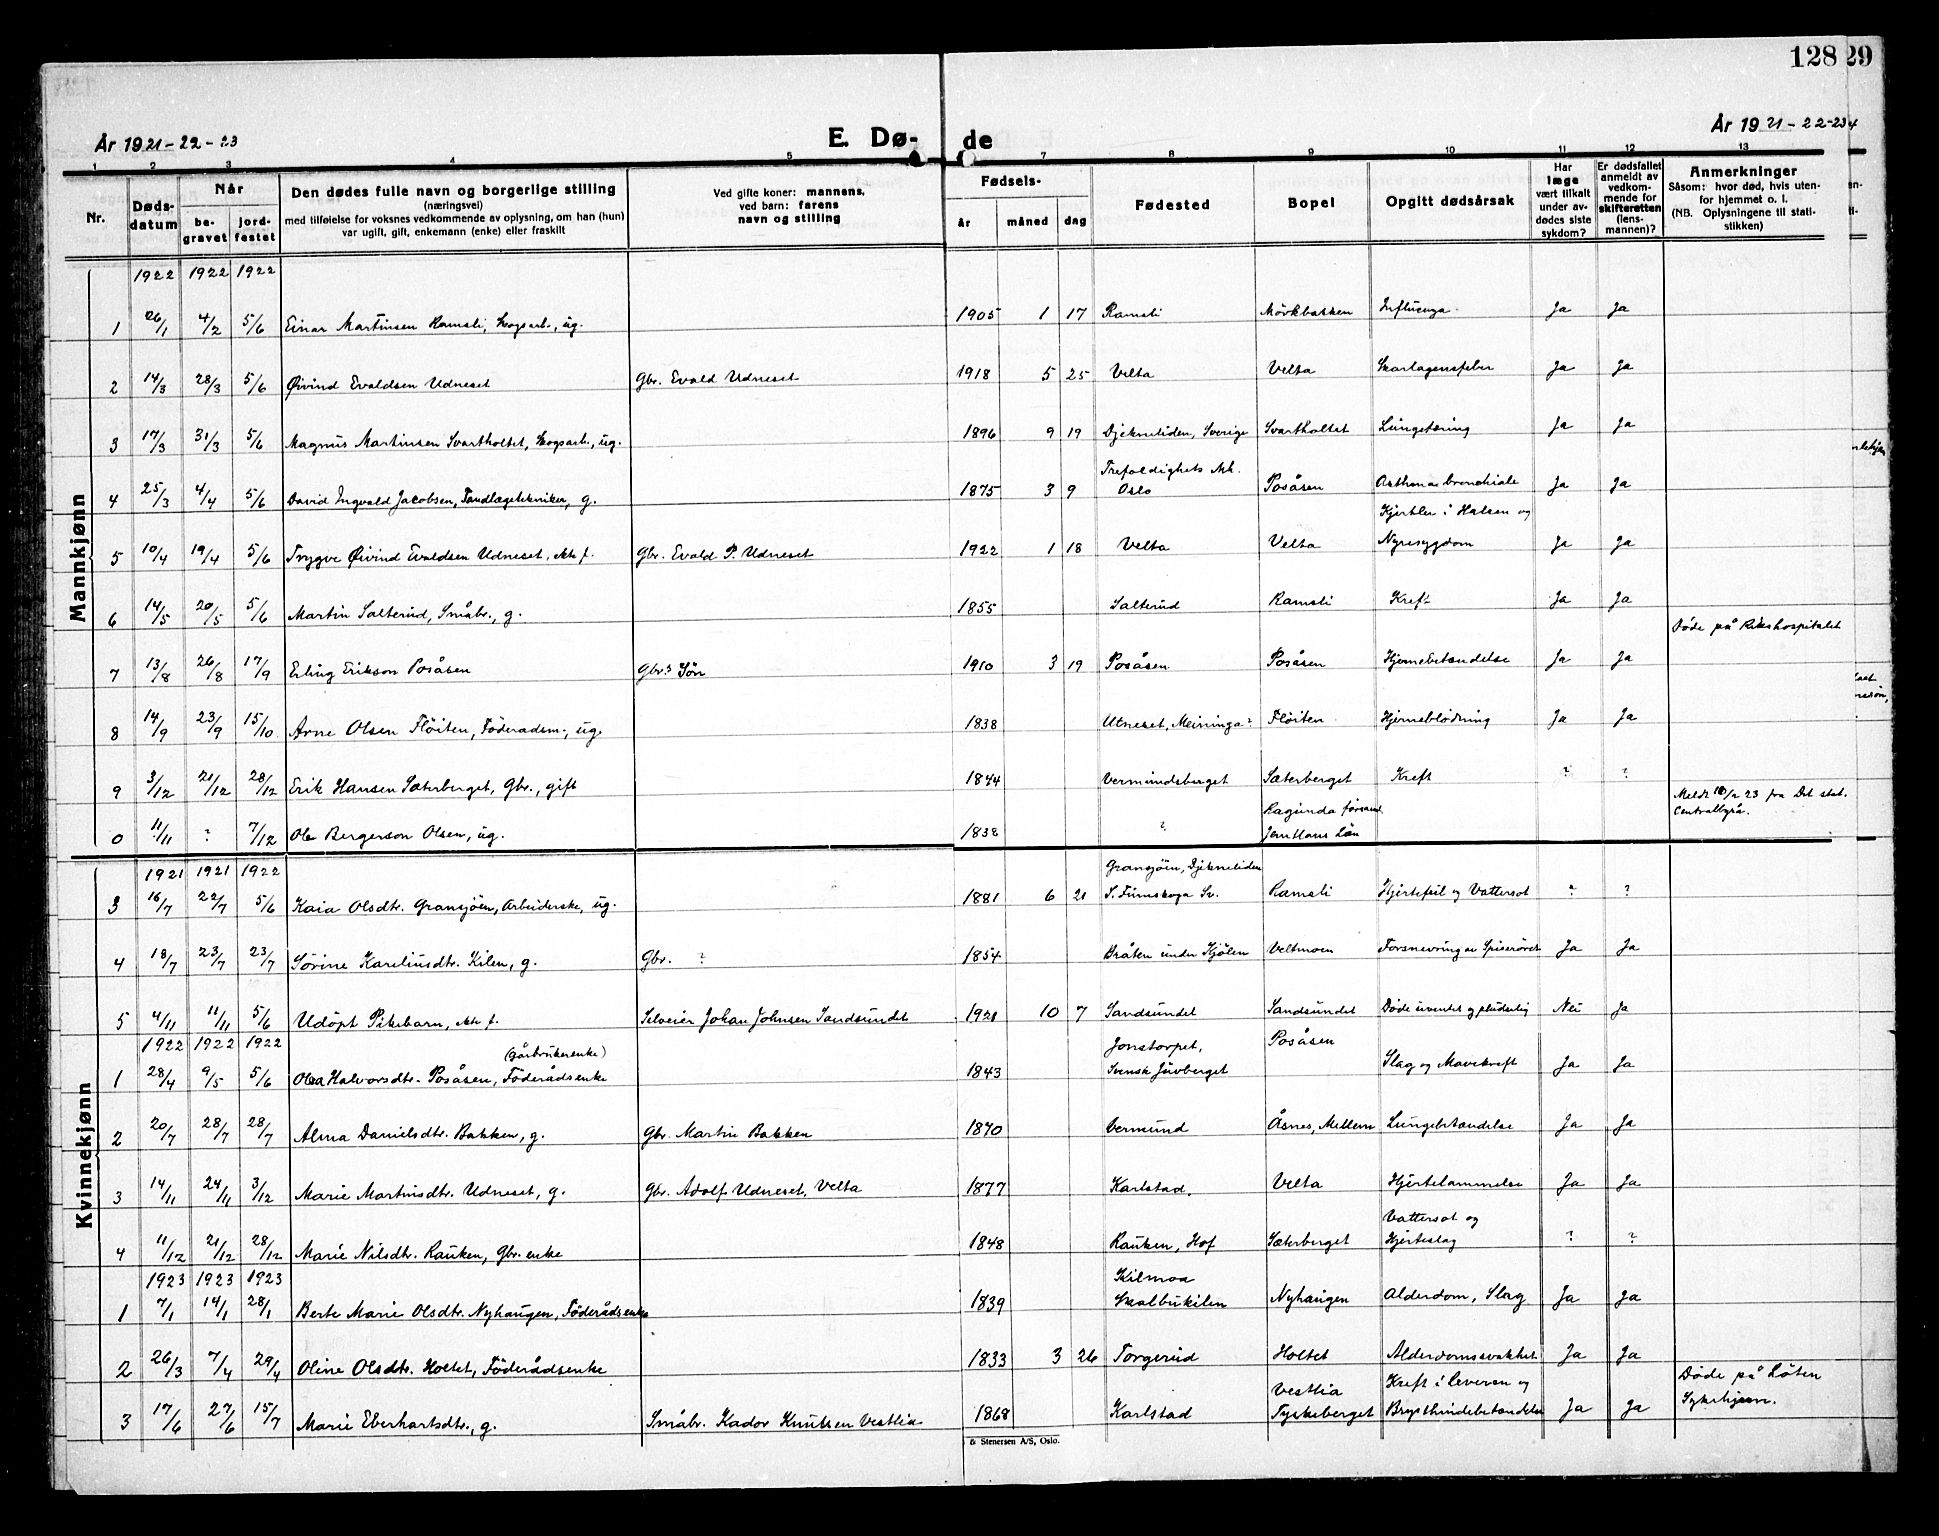 128 29
År 1921-22-23
E. Dø-
de
År 1921-22-23 4
1 2 3 4 5 7 8 9 10 11 12 13
Nr.
Døds-
datum
Når
be-
gravet
jord-
festet
Den dødes fulle navn og borgerlige stilling
(næringsvei)
med tilføielse for voksnes vedkommende av oplysning, om han (hun)
var ugift, gift, enkemann (enke) eller fraskilt
Ved gifte koner: mannens,
ved barn: farens
navn og stilling
Fødsels-
år måned dag
Fødested
Bopel
Opgitt dødsårsak
Har
læge
vært tilkalt
under av-
dødes siste
sykdom?
Er dødsfallet
anmeldt av
vedkom-
mende for
skifteretten
(lens-
mannen)?
Anmerkninger
Såsom: hvor død, hvis uten-
for hjemmet o. l.
(NB. Oplysningene til stati-
stikken)
Mannkjønn
1922 1922 1922
1 26/1 4/2 5/6 Einar Martinsen Ramsli, Skogsarb., ug. 1905 1 17 Ramsli Mörkbakken Influenza. Ja Ja
2 14/3 28/3 5/6 Øivind Evaldsen Udneset Gbr. Evald Udneset 1918 5 25 Velta Velta Skarlagensfeber Ja Ja
3 17/3 31/3 5/6 Magnus Martinsen Svartholtet, Skogsarb., ug. 1896 9 19 Djekneliden, Sverige Svartholtet Lungetæring Ja Ja
Trefoldighets
4 25/3 4/4 5/6 David Ingvald Jacobsen, Tandlægetekniker, g. 1875 3 9 Oslo Posåsen Asthma bronchiale Ja Ja
Kjertler i Halsen og
5 10/4 19/4 5/6 Trygve Øivind Evaldsen Udneset, ekte f. Gbr. Evald P. Udneset 1922 1 18 Velta Velta Nyresygdom Ja Ja
6 14/5 20/5 5/6 Martin Salterud, Småbr., g. 1855 Salterud Ramsli Kreft Ja Ja
Döde på Rikshospitalet
7 13/8 26/8 17/9 Erling Erikson Posåsen Gbr. Sön 1910 3 19 Posåsen Posåsen Hjernebetændelse Ja Ja
8 14/9 23/9 15/10 Arne Olsen Flöiten, Föderådsm., ug. 1838 Utneset, Meininga? Flöiten Hjerneblödning Ja Ja
9 3/12 21/12 28/12 Erik Hansen Sæterberget, Gbr., gift 1844 Vermundsberget Sæterberget Kreft ? ?
Meldt 10/2 23 fra Det stat.
Centralbyrå.
Ragunda församl.
0 11/11 ? 7/12 Ole Bergerson Olsen, ug. 1838 ? Jemtlans Län
Kvinnekjønn
1921 1921 1922
Gransjöen, Djekneliden
3 16/7 22/7 5/6 Kaia Olsdtr. Gransjöen, Arbeiderske, ug. 1881 6 21 S. Finnskoga Sv. Ramsli Hjertefeil og Vattersot ? ?
4 18/7 23/7 23/7 Sörine Kareliusdtr. Kilen, g. Gbr. ? 1854 Bråten under Kjölen Veltmoen Forsnevring av Spiseröret Ja Ja
5 4/11 11/11 5/6 Udöpt Pikebarn, ekte f. Selveier Johan Johnsen Sandsundet 1921 10 7 Sandsundet Sandsundet Döde uventet og pludselig Nei Ja
1922 1922 1922
(Gårbrukerenke)
Jonstorpet,
1 28/4 9/5 5/6 Olea Halvorsdtr. Posåsen, Föderådsenke 1843 Svensk Juvberget Posåsen Slag og Mavekreft Ja Ja
2 20/7 28/7 28/7 Alma Danielsdtr. Bakken, g. Gbr. Martin Bakken 1870 Vermund Åsnes, Mellem Lungebetændelse Ja Ja
3 14/11 24/11 3/12 Marie Martinsdtr. Udneset, g. Gbr. Adolf Udneset, Velta 1877 Karlstad. Velta Hjertelammelse Ja Ja
Vattersot og
4 11/12 21/12 28/12 Marie Nilsdtr. Rauken, Gbr. enke 1848 Rauken, Hof Sæterberget Hjerteslag ? ?
1923 1923 1923
Kilmoa
1 7/1 14/1 28/1 Berte Marie Olsdtr. Nyhaugen, Föderådsenke 1839 Skalbukilen Nyhaugen Alderdom, Slag Ja Ja
2 26/3 7/4 29/4 Oline Olsdtr. Holtet, Föderådsenke 1833 3 26 Torgerud Holtet Alderdomssvakhet Ja Ja
Vestlia Kreft i Leveren og
3 17/6 27/6 15/7 Marie Eberhartsdtr., g. Småbr. Kador Knutsen Vestlia 1868 Karlstad Tyskeberget Brysthindebetændelse Ja Ja
Döde på Löten
Sykehjem.
& Stenersen A/S, Oslo.